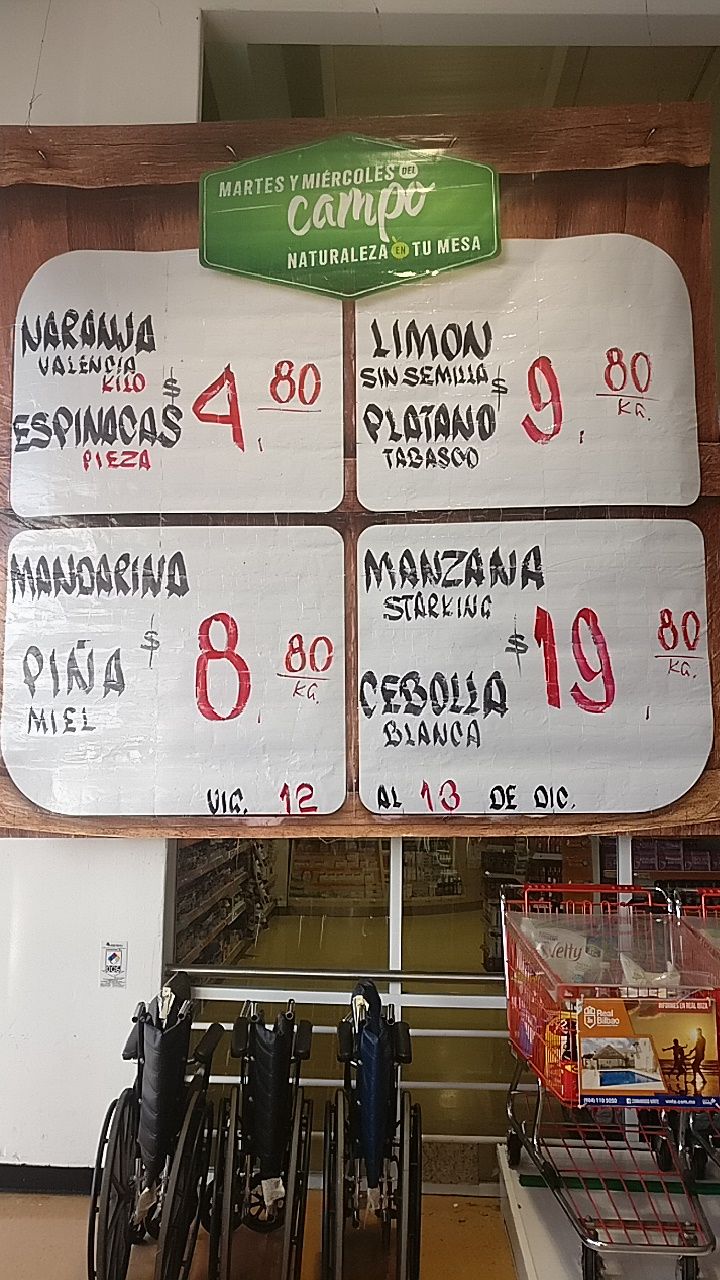 MARTES Y MIÉRCOLES DEL
campo
NATURALEZA EN TU MESA
NARANJA
VALENCIA
KILO
ESPINACAS
PIEZA
$ 4.80
LIMON
SIN SEMILLA
PLATANO
TABASCO
$ 9.80
KG.
MANDARINA
PIÑA
MIEL
$ 8.80
KG.
MANZANA
STARKING
CEBOLLA
BLANCA
$ 19.80
KG.
VIG. 12 AL 13 DE DIC.
Velty
INFORMES EN REAL IBIZA
Real
Bilbao